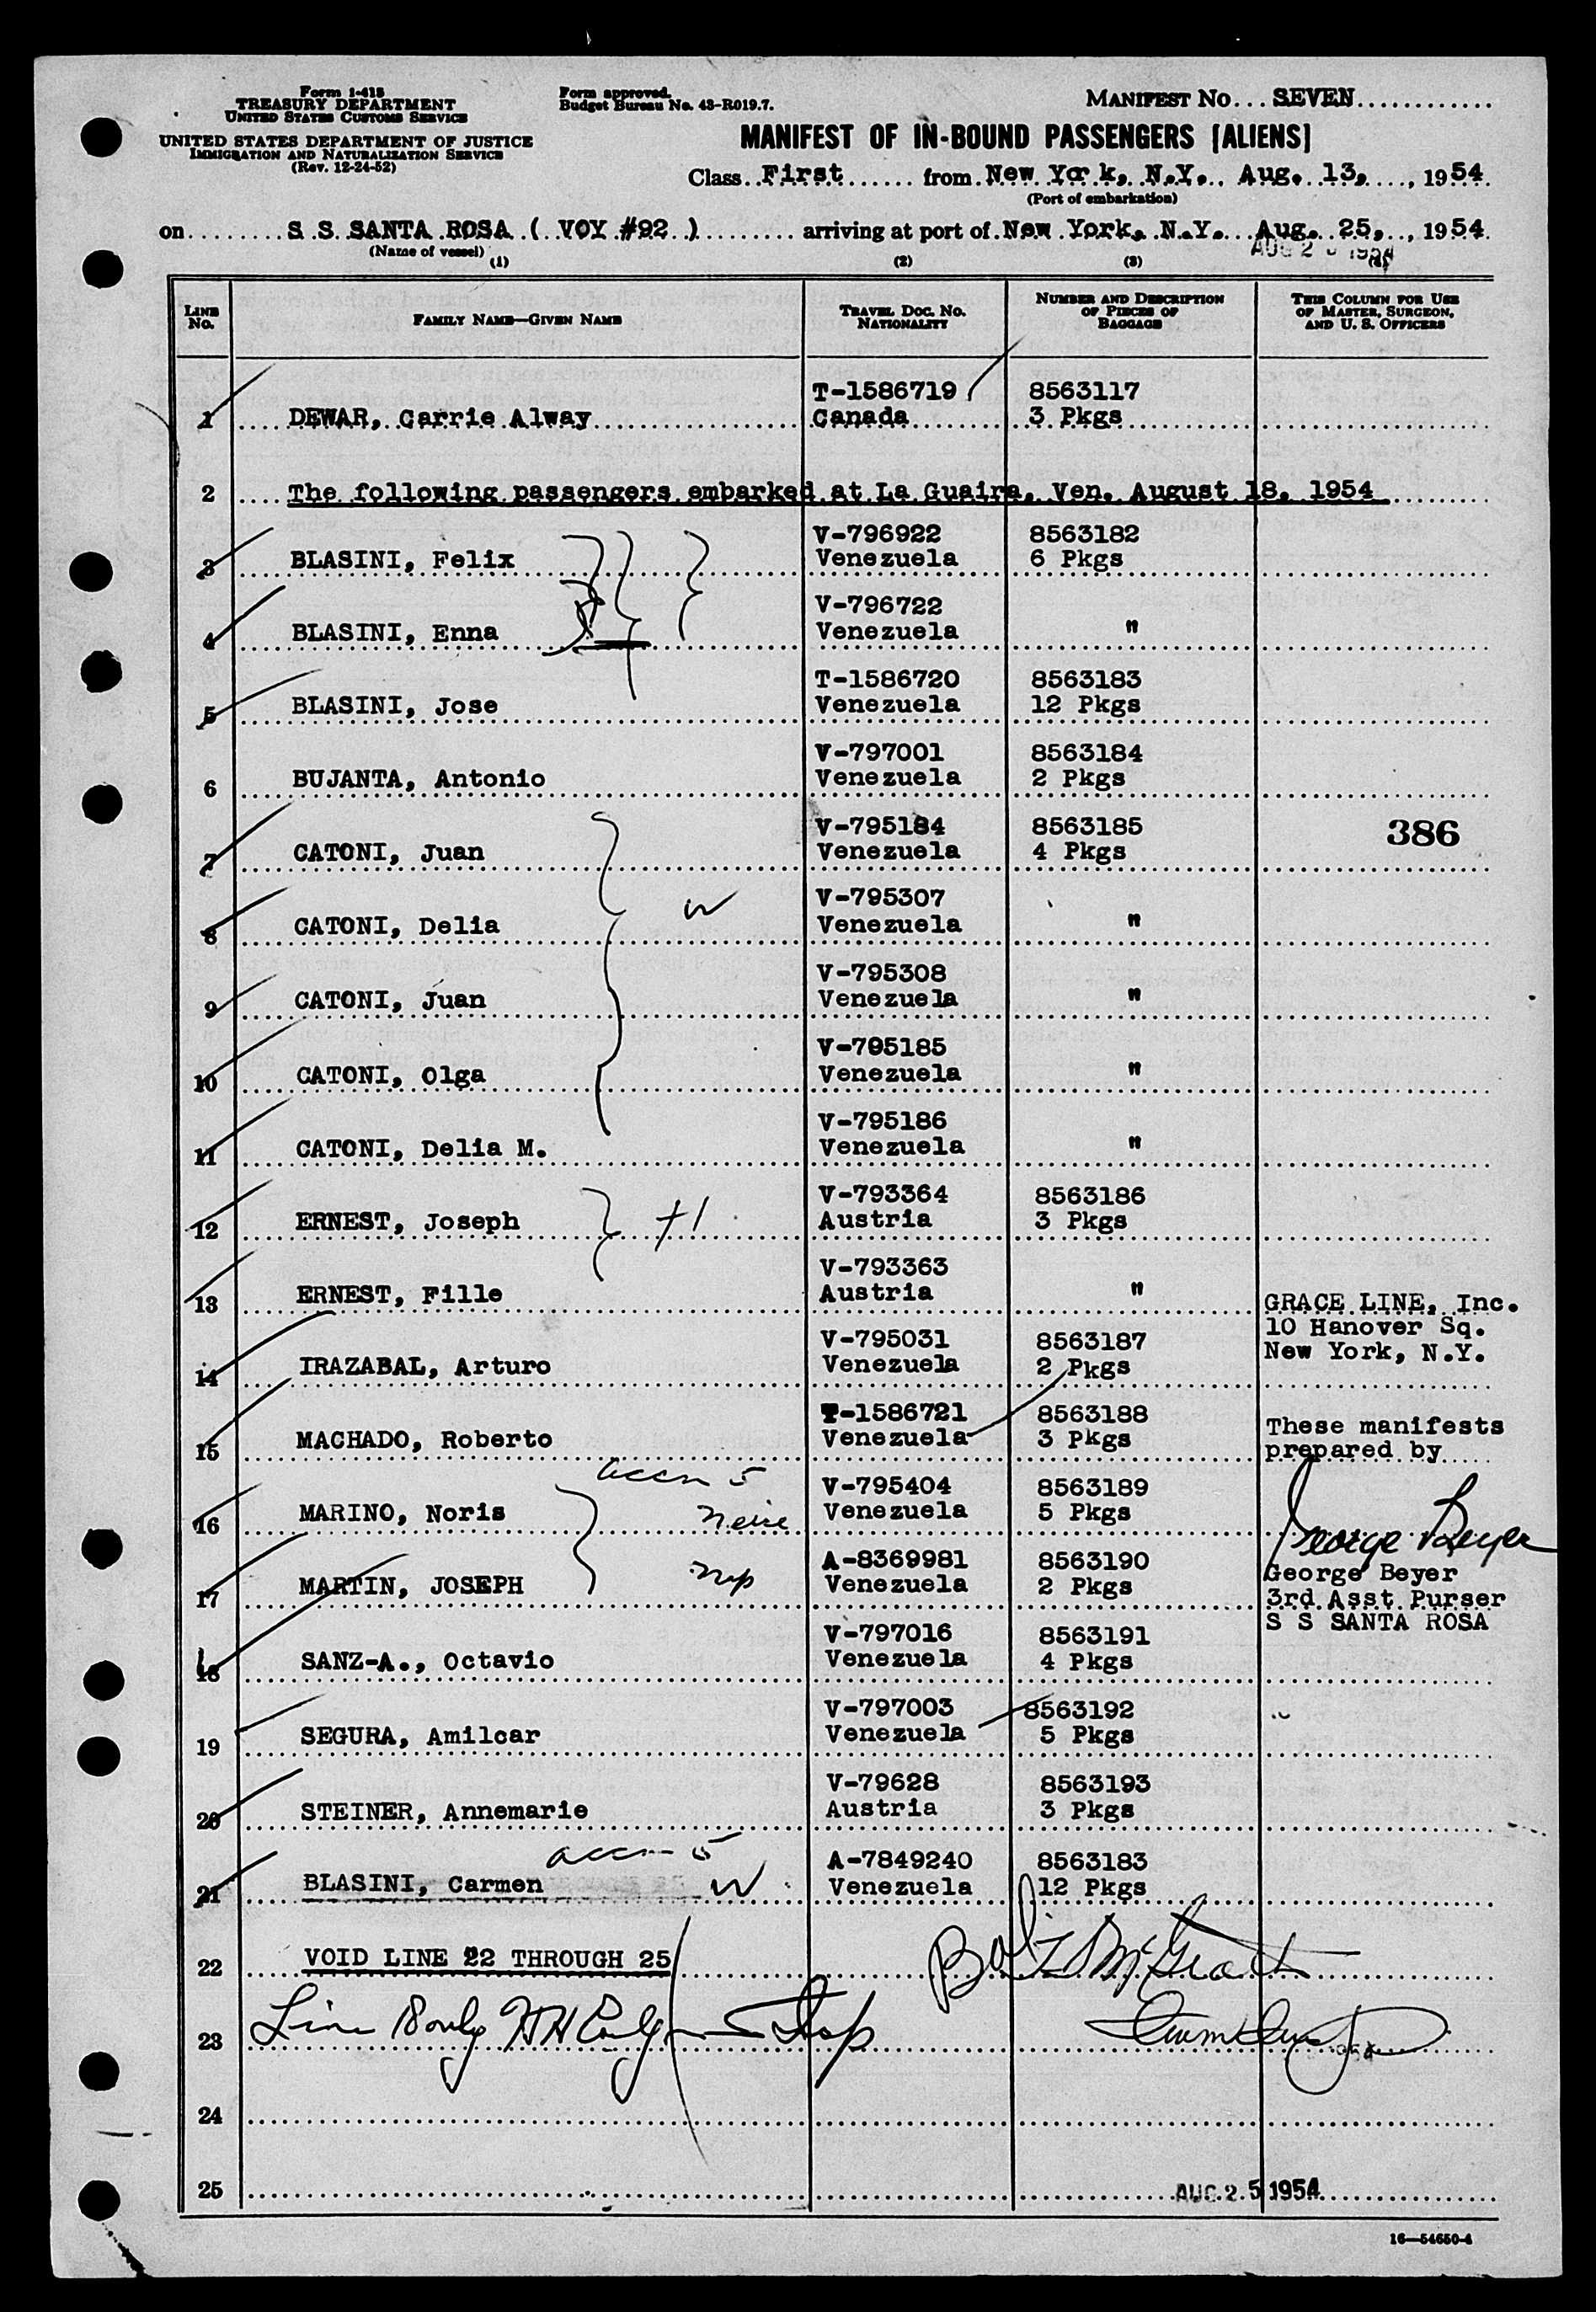 Form I-415
TREASURY DEPARTMENT
UNITED STATES CUSTOMS SERVICE
UNITED STATES DEPARTMENT OF JUSTICE
IMMIGRATION AND NATURALIZATION SERVICE
(Rev. 12-24-52)
Form approved.
Budget Bureau No. 43-R019.7.
MANIFEST NO... SEVEN
MANIFEST OF IN-BOUND PASSENGERS [ALIENS]
Class First from New York, N.Y. Aug. 13, , 1954
(Port of embarkation)
on S S SANTA ROSA ( VOY #92 ) arriving at port of New York, N.Y. Aug. 25, , 1954
(Name of vessel)
(1) (2) (3) (4)
LINE NO. FAMILY NAME—GIVEN NAME TRAVEL DOC. NO. NATIONALITY NUMBER AND DESCRIPTION OF PIECES OF BAGGAGE THIS COLUMN FOR USE OF MASTER, SURGEON, AND U. S. OFFICERS
T-1586719 8563117
1 DEWAR, Carrie Alway Canada 3 Pkgs
2 The following passengers embarked at La Guaira, Ven. August 18, 1954
V-796922 8563182
3 BLASINI, Felix Venezuela 6 Pkgs
V-796722
4 BLASINI, Enna Venezuela "
T-1586720 8563183
5 BLASINI, Jose Venezuela 12 Pkgs
V-797001 8563184
6 BUJANTA, Antonio Venezuela 2 Pkgs
V-795184 8563185 386
7 CATONI, Juan Venezuela 4 Pkgs
V-795307
8 CATONI, Delia W Venezuela "
V-795308
9 CATONI, Juan Venezuela "
V-795185
10 CATONI, Olga Venezuela "
V-795186
11 CATONI, Delia M. Venezuela "
V-793364 8563186
12 ERNEST, Joseph Austria 3 Pkgs
V-793363
13 ERNEST, Fille Austria "
GRACE LINE, Inc.
10 Hanover Sq.
New York, N.Y.
V-795031 8563187
14 IRAZABAL, Arturo Venezuela 2 Pkgs
T-1586721 8563188
15 MACHADO, Roberto Venezuela 3 Pkgs
These manifests
prepared by
V-795404 8563189
16 MARINO, Noris Venezuela 5 Pkgs
George Beyer
A-8369981 8563190
17 MARTIN, JOSEPH Venezuela 2 Pkgs
George Beyer
3rd Asst Purser
S S SANTA ROSA
V-797016 8563191
18 SANZ-A., Octavio Venezuela 4 Pkgs
V-797003 8563192
19 SEGURA, Amilcar Venezuela 5 Pkgs
V-79628 8563193
20 STEINER, Annemarie Austria 3 Pkgs
A-7849240 8563183
21 BLASINI, Carmen W Venezuela 12 Pkgs
22 VOID LINE 22 THROUGH 25
23 Line 18 only
24
25
AUG 25 1954
16—54650-4